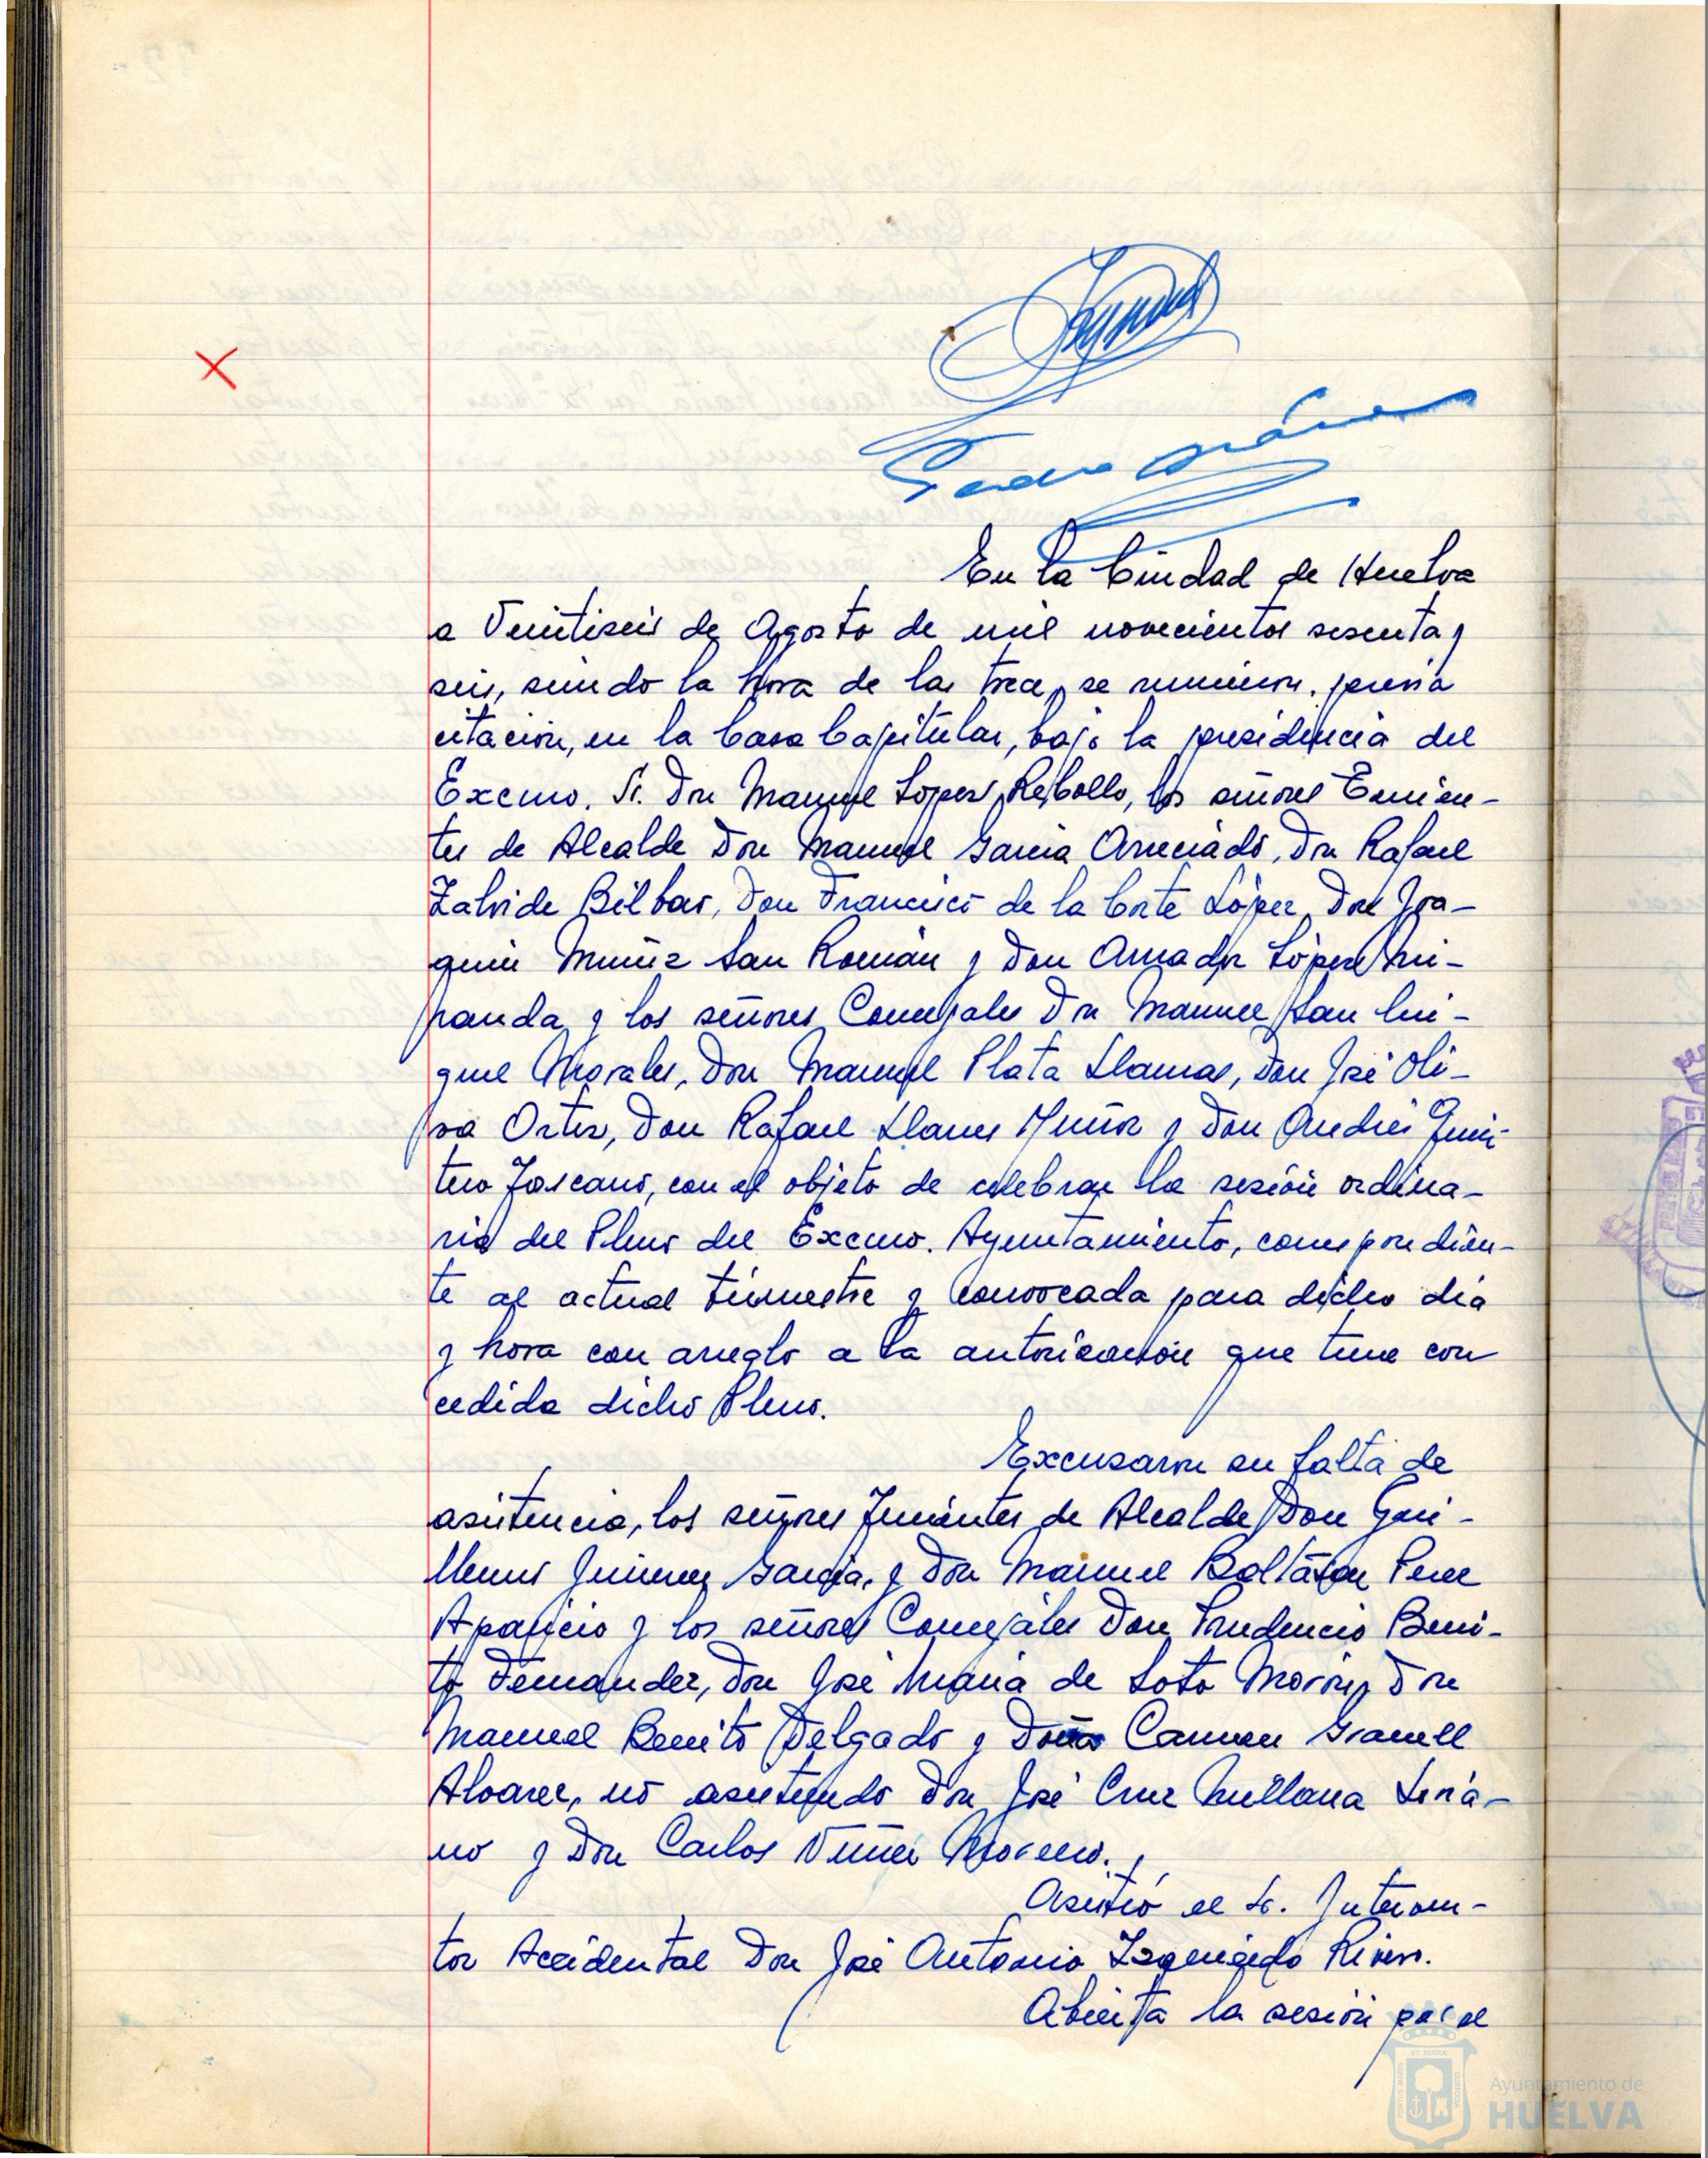 En la Ciudad de Huelva
a Veintiseis de Agosto de mil novecientos sesenta y
seis, siendo la hora de las trece, se reunieron, previa
citación, en la Casa Capitular, bajo la presidencia del
Excmo. Sr. Don Manuel López Rebollo, los señores Tenien-
tes de Alcalde Don Manuel Garcia Arreciado, Don Rafael
Zalvide Bilbao, Don Francisco de la Corte López, Don Joa-
quin Muñiz San Román y Don Amador López Mi-
randa y los señores Concejales Don Manuel San Mi-
guel Morales, Don Manuel Plata Llamas, Don José Oli-
va Ortiz, Don Rafael Llanes Muñoz y Don Andrés Quin-
tero Toscano, con el objeto de celebrar la sesión ordina-
ria del Pleno del Excmo. Ayuntamiento, correspondien-
te al actual trimestre y convocada para dicho dia
y hora con arreglo a la autorización que tiene con
cedida dicho Pleno.
Excusaron su falta de
asistencia, los señores Tenientes de Alcalde Don Gui-
llermo Jimenez Garcia, y Don Manuel Baltasar Perez
Aparicio y los señores Concejales Don Prudencio Beni-
to Fernandez, Don José Maria de Soto Morón, Don
Manuel Benito Delgado y Doña Carmen Granell
Alvarez, no asistiendo Don José Cruz Millana
y Don Carlos Nuñez Moreno.
Asistió el Sr. Interven-
tor Accidental Don José Antonio Izquierdo Rivero.
Abierta la sesión por el
Ayuntamiento de
HUELVA